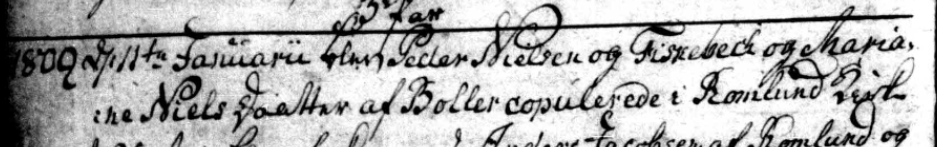 1809 d. 11te Januarii blev Peder Nielsen og Fiskebech og Maria,
ne Niels Daatter af Boller copulerede i Romlund Kirk
Anders Jacobsen af Romlund og